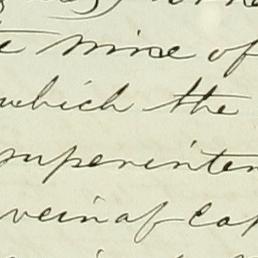 mine of
which the
superinten
vein of Cop